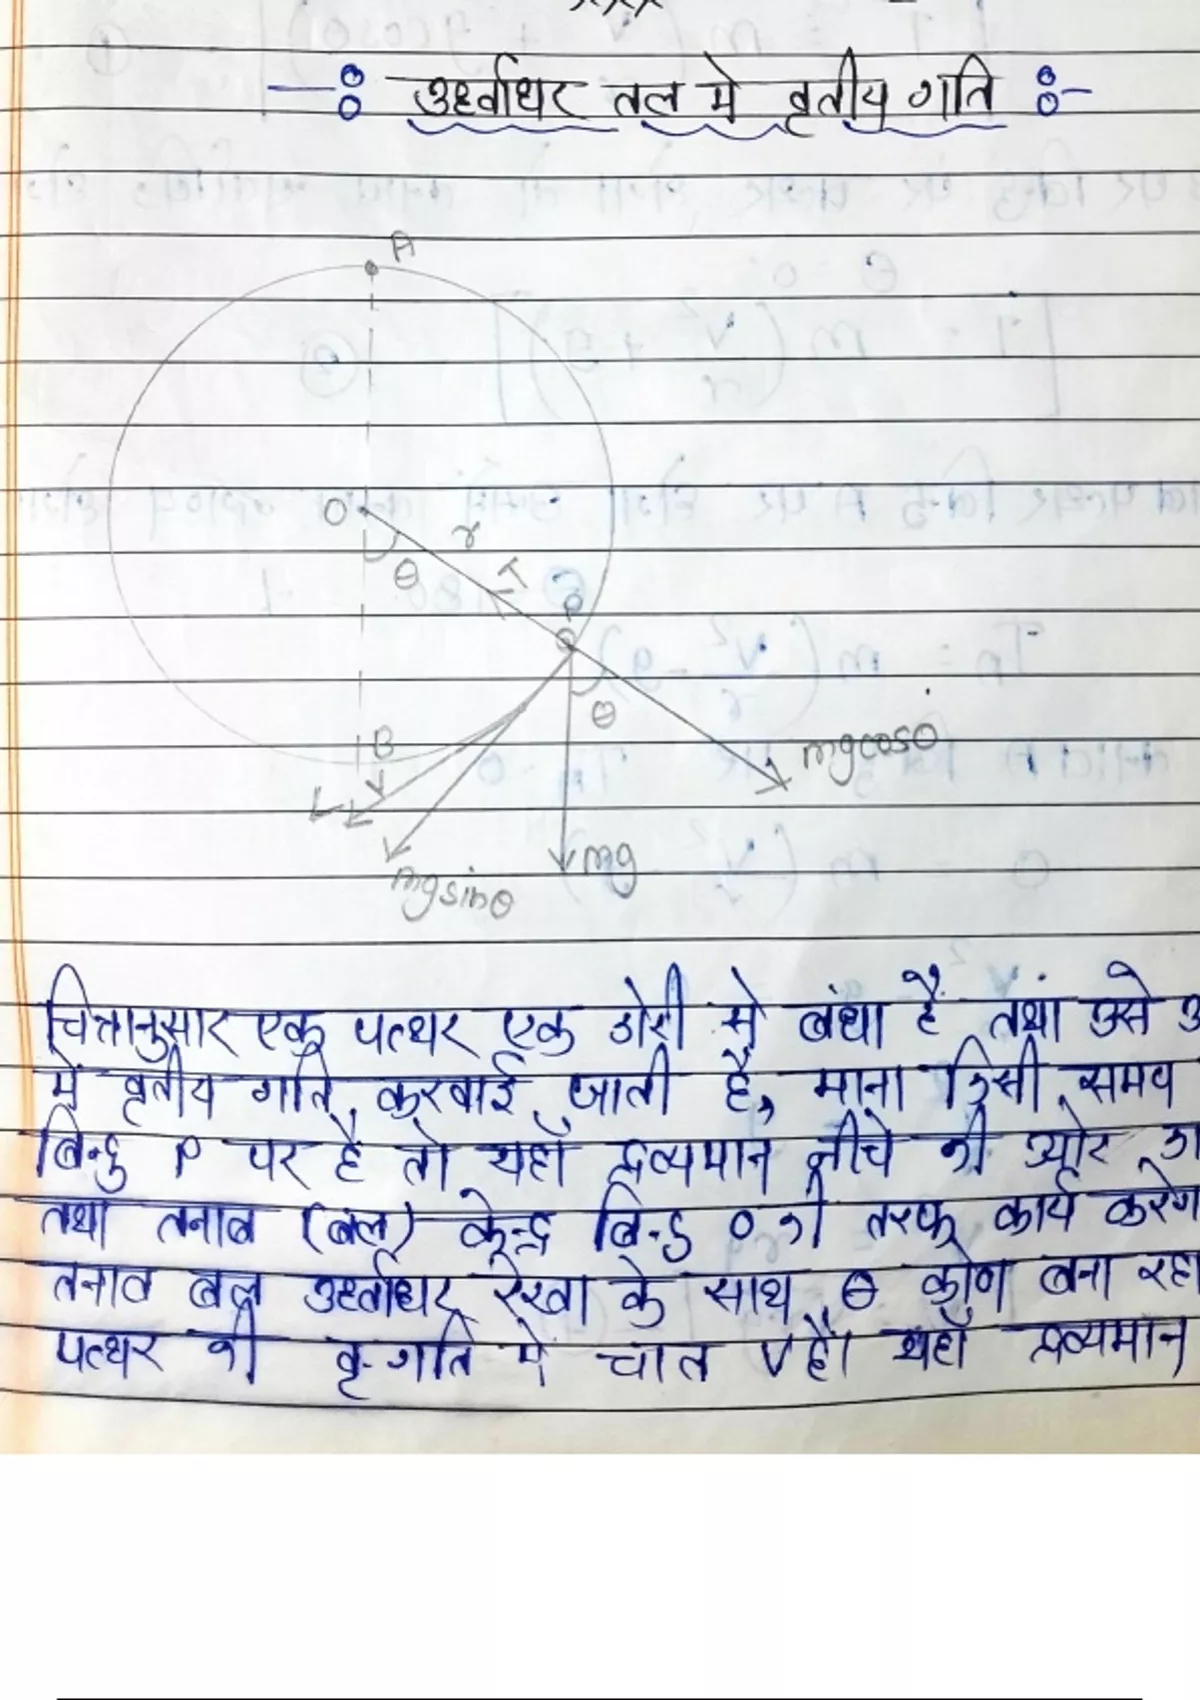 -: उर्ध्वाधर तल मे वृतीय गति :-
A
O
r
θ
T
P
θ
B
mgcosθ
V
mg
mgsinθ
चित्रानुसार एक पत्थर एक डोरी से बंधा है तथा उसे
में वृतीय गति करवाई जाती है, माना किसी समय
बिन्दु P पर है तो यहाँ द्रव्यमान नीचे की ओर
तथा तनाव (बल) केन्द्र बिन्दु O की तरफ कार्य करेग
तनाव बल उर्ध्वाधर रेखा के साथ θ कोण बना रहा
पत्थर की वृ. गति मे चाल V है। यहाँ द्रव्यमान